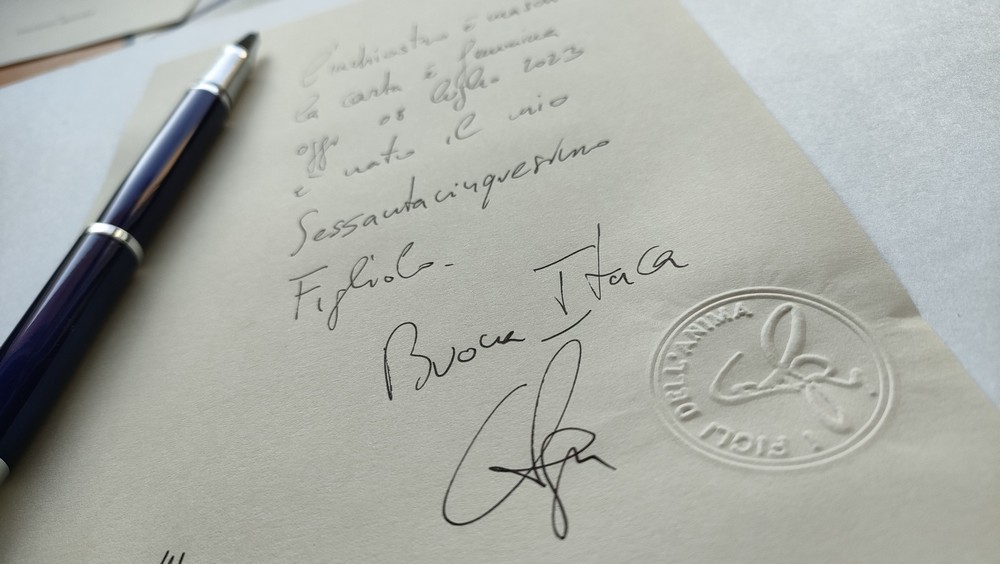 L'inchiostro è maschi
la carta è femmina
oggi 08 luglio 2023
è nato il mio
Sessantacinquesimo
Figliolo.
Buona Itaca
I FIGLI DELL'ANIMA